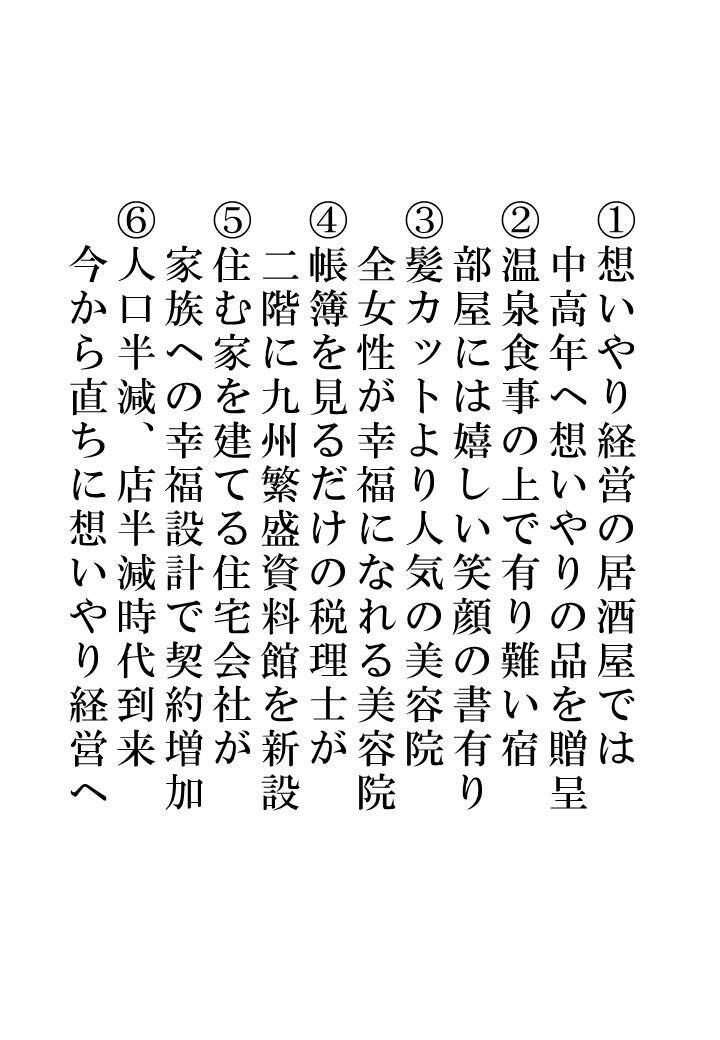 ①想いやり経営の居酒屋では
中高年へ想いやりの品を贈呈
②温泉食事の上で有り難い宿
部屋には嬉しい笑顔の書有り
③髪カットより人気の美容院
全女性が幸福になれる美容院
④帳簿を見るだけの税理士が
二階に九州繁盛資料館を新設
⑤住む家を建てる住宅会社が
家族への幸福設計で契約増加
⑥人口半減、店半減時代到来
今から直ちに想いやり経営へ